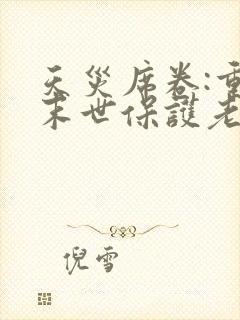 天災席卷:重
末世保護老
倪雪